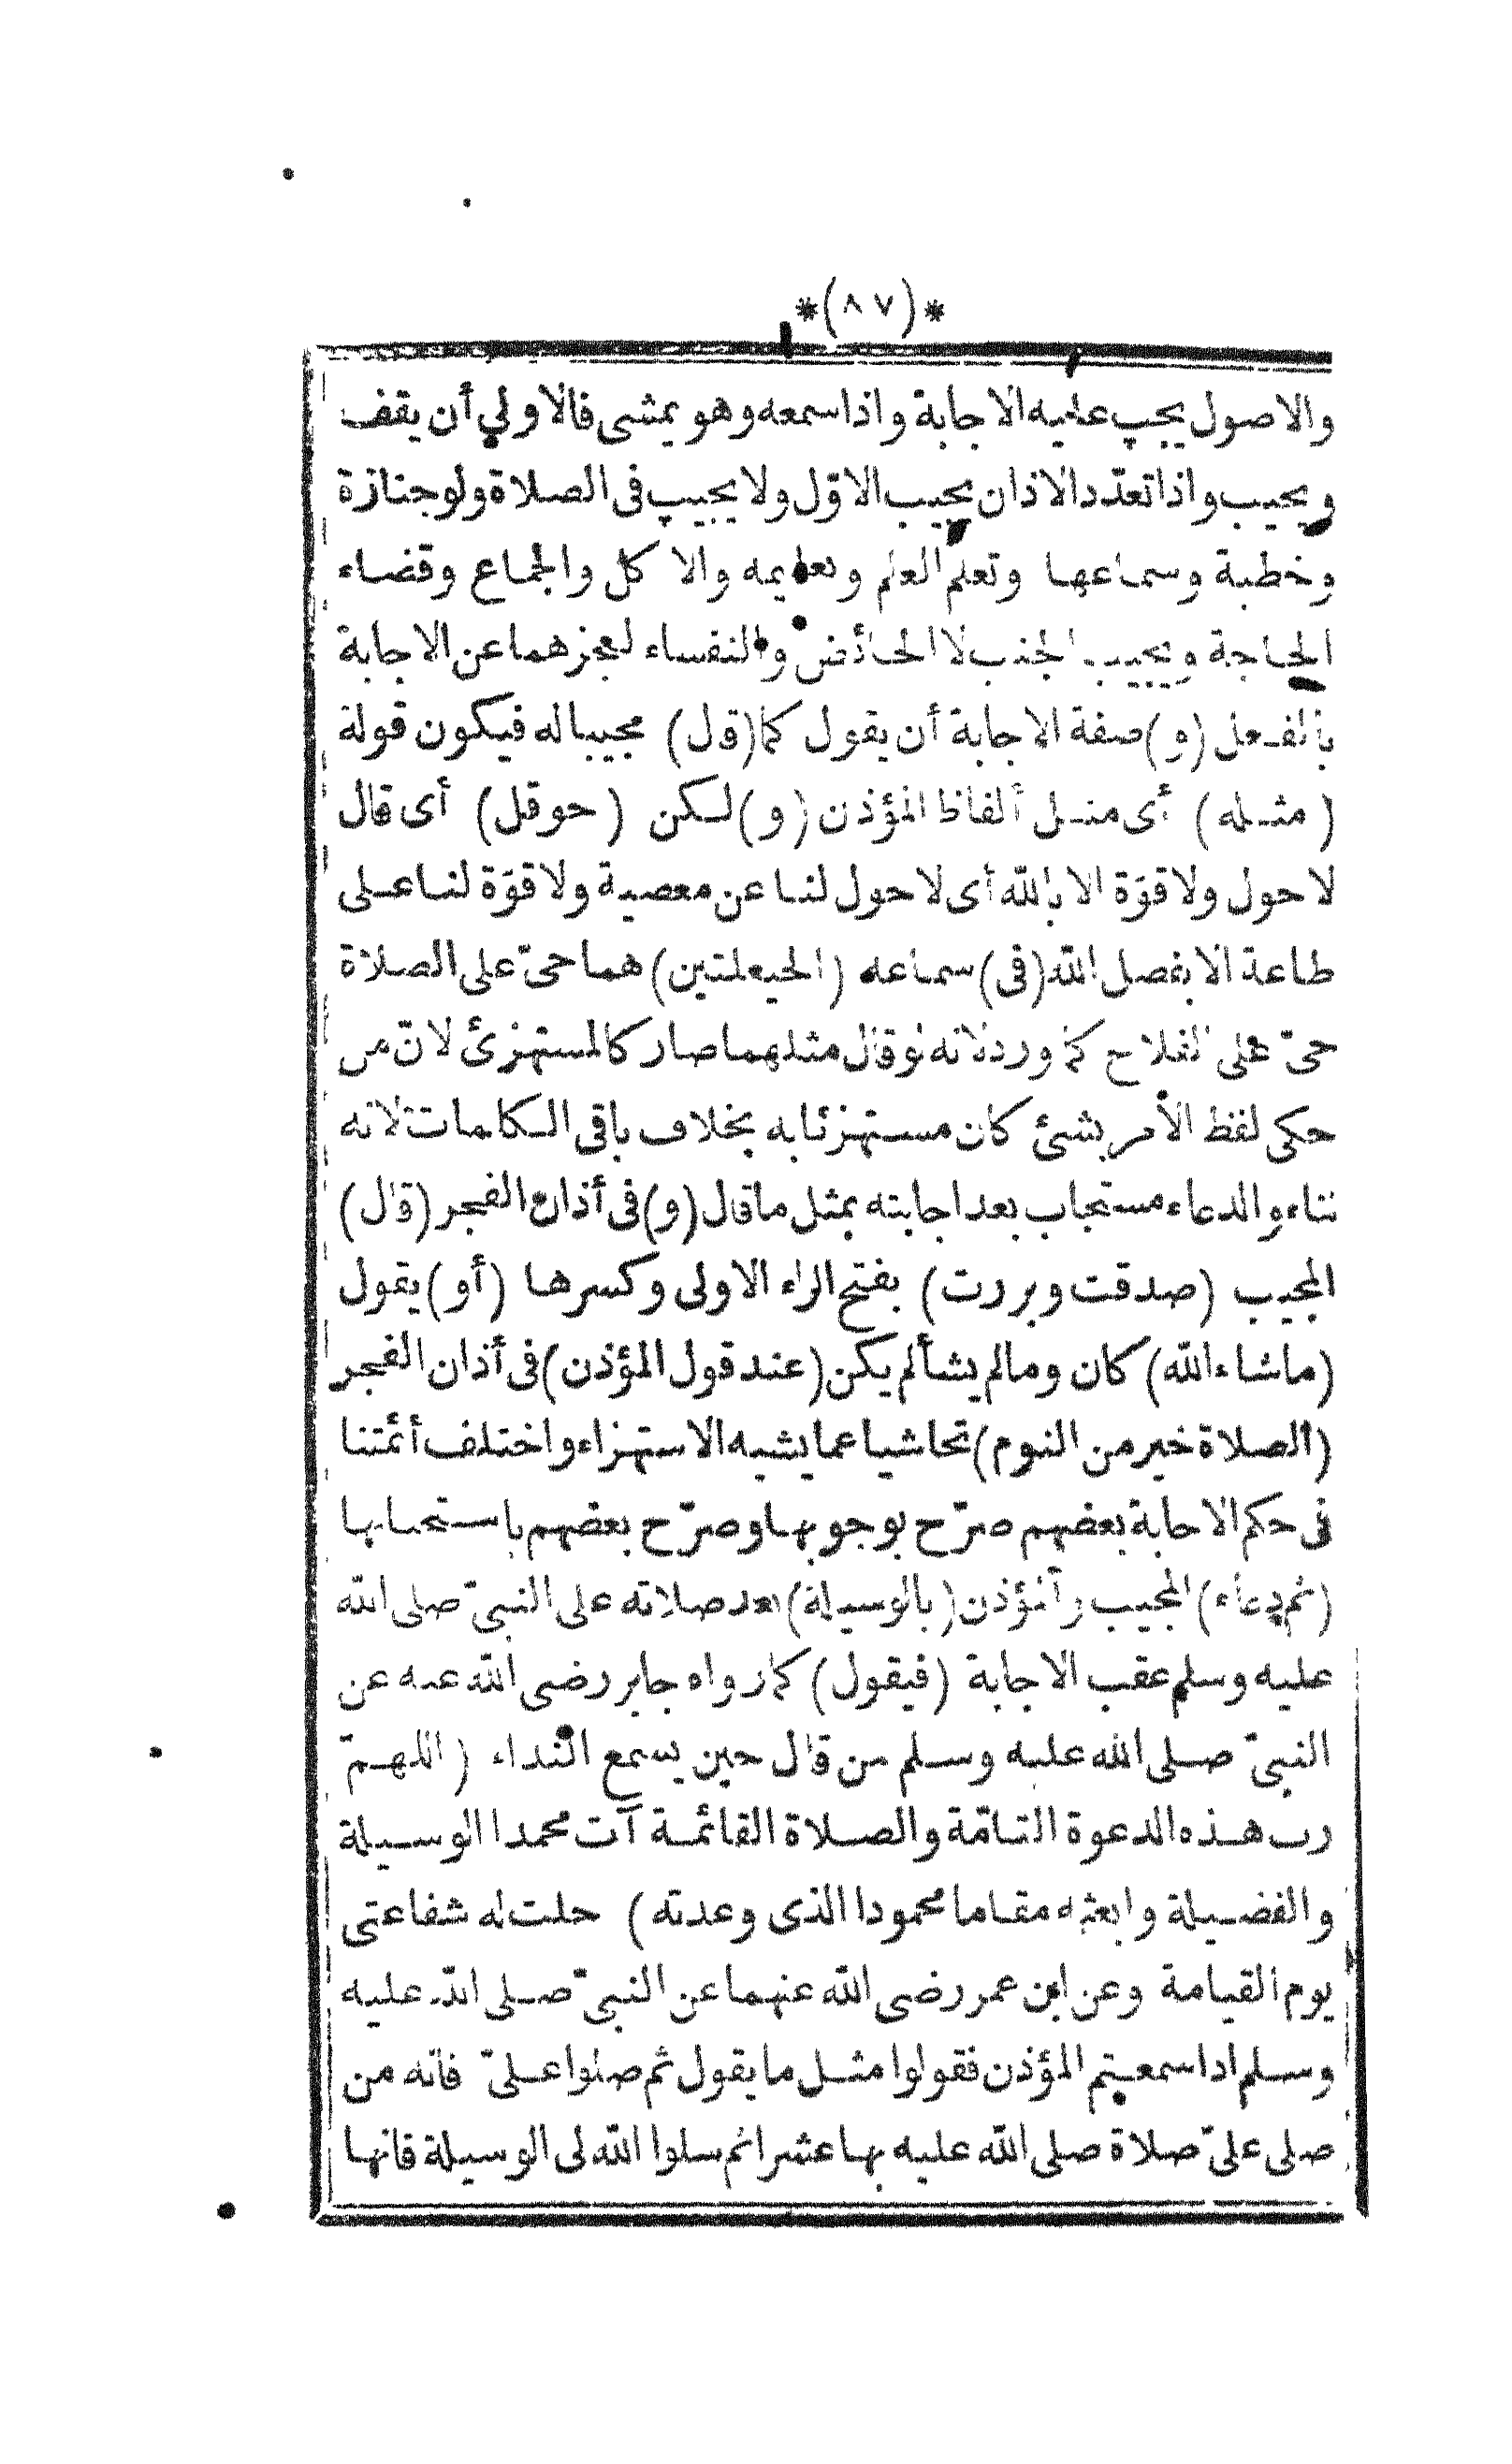 *(٨٧)*
والاصول يجب عليه الاجابة واذا سمعه وهو يمشى فالاولى أن يقف
ويجيب واذا تعدّد الاذان يجيب الاوّل ولا يجيب فى الصلاة ولو جنازة
وخطبة وسماعها وتعلم العلم وتعليمه والاكل والجماع وقضاء
الحاجة ويجيب الجنب لا الحائض والنفساء لعجزهما عن الاجابة
بالفعل (و) صفة الاجابة أن يقول كما (قال) مجيبا له فيكون قوله
(مثله) أى مثل ألفاظ المؤذن (و) لكن (حوقل) أى قال
لا حول ولا قوّة الا بالله أى لا حول لنا عن معصية ولا قوّة لنا على
طاعة الا بفضل الله (فى) سماعه (الحيعلتين) هما حىّ على الصلاة
حىّ على الفلاح كما ورد لانه لو قال مثلهما صار كالمستهزئ لانّ من
حكى لفظ الأمر بشئ كان مستهزئا به بخلاف باقى الكلمات لانه
ثناء والدعاء مستجاب بعد اجابته بمثل ما قال (و) فى أذان الفجر (قال)
المجيب (صدقت وبررت) بفتح الراء الاولى وكسرها (أو) يقول
(ماشاء الله) كان وما لم يشأ لم يكن (عند قول المؤذن) فى أذان الفجر
(الصلاة خير من النوم) تحاشيا عما يشبه الاستهزاء واختلف أئمتنا
فى حكم الاجابة بعضهم صرّح بوجوبها وصرّح بعضهم باستحبابها
(ثم دعاء) المجيب والمؤذن (بالوسيلة) بعد صلاته على النبىّ صلى الله
عليه وسلم عقب الاجابة (فيقول) كما رواه جابر رضى الله عنه عن
النبىّ صلى الله عليه وسلم من قال حين يسمع النداء (اللهمّ
رب هذه الدعوة التامّة والصلاة القائمة آت محمدا الوسيلة
والفضيلة وابعثه مقاما محمودا الذى وعدته) حلت له شفاعتى
يوم القيامة وعن ابن عمر رضى الله عنهما عن النبىّ صلى الله عليه
وسلم اذا سمعتم المؤذن فقولوا مثل ما يقول ثم صلوا علىّ فانه من
صلى علىّ صلاة صلى الله عليه بها عشرا ثم سلوا الله لى الوسيلة فانها